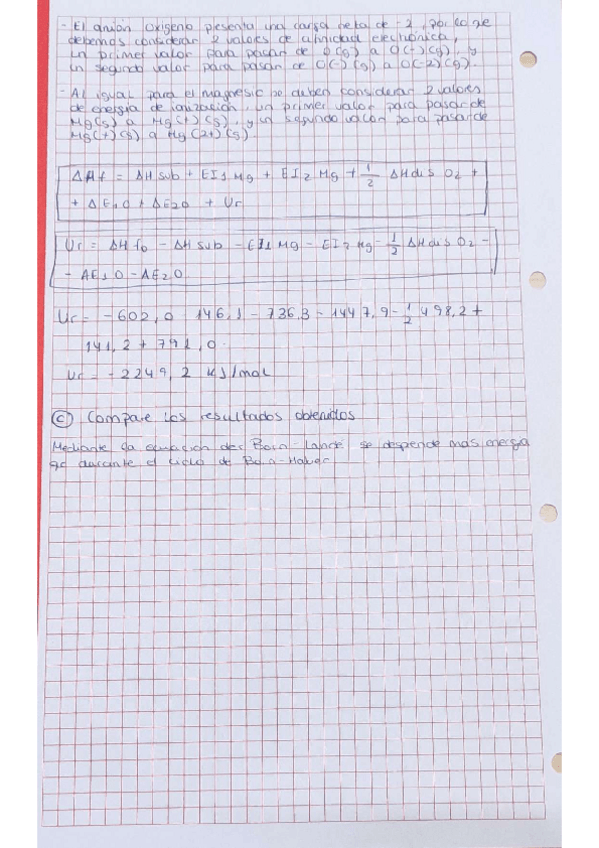 - El anión oxígeno presenta una carga neta de -2, por lo qe
debemos considerar 2 valores de afinidad electrónica,
un primer valor para pasar de O(g) a O(-)(g), y
un segundo valor para pasar de O(-)(g) a O(-2)(g).
- Al igual para el magnesio se deben considerar 2 valores
de energía de ionización, un primer valor para pasar de
Mg(s) a Mg(+)(g), y un segundo valor para pasar de
Mg(+)(g) a Mg(2+)(g)
ΔHf = ΔHsub + EI1 Mg + EI2 Mg + 1/2 ΔHdis O2 +
+ ΔE1O + ΔE2O + Ur
Ur = ΔHfo - ΔHsub - EI1 Mg - EI2 Mg - 1/2 ΔHdis O2 -
- AE1O - AE2O
Ur = -602,0 146,1 - 736,3 - 1447,9 - 1/2 498,2 +
141,2 + 791,0.
Ur = -2249,2 kJ/mol
c) Compare los resultados obtenidos
Mediante la ecuación des Born-Landé se despende mas energía
qe durante el ciclo de Born-Haber